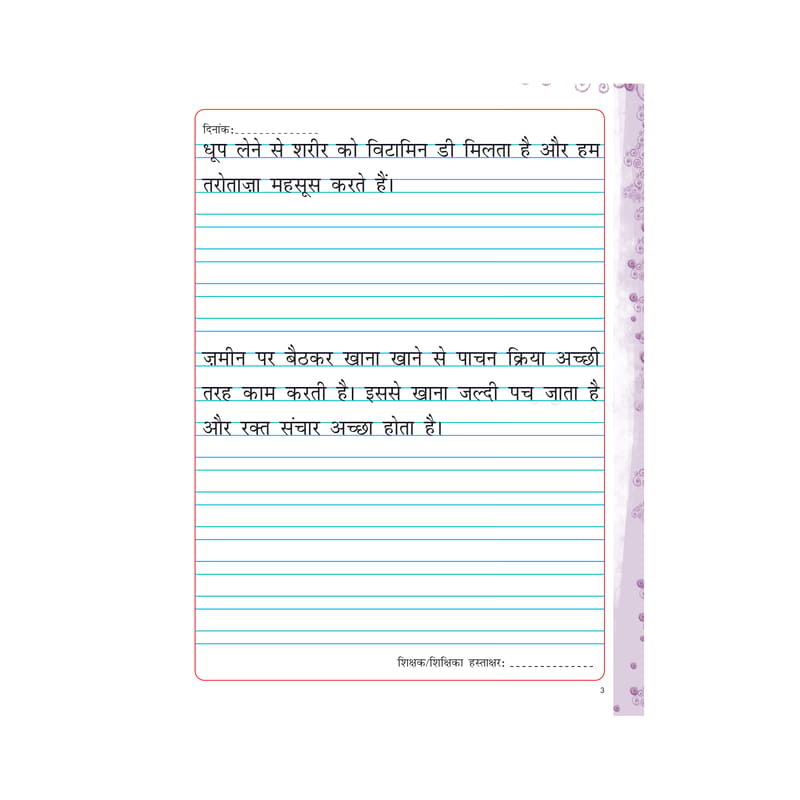 दिनांक:_ _ _ _ _ _ _ _ _ _ _ _ _ _
धूप लेने से शरीर को विटामिन डी मिलता है और हम
तरोताज़ा महसूस करते हैं।
ज़मीन पर बैठकर खाना खाने से पाचन क्रिया अच्छी
तरह काम करती है। इससे खाना जल्दी पच जाता है
और रक्त संचार अच्छा होता है।
शिक्षक/शिक्षिका हस्ताक्षर: _ _ _ _ _ _ _ _ _ _ _ _ _ _
3